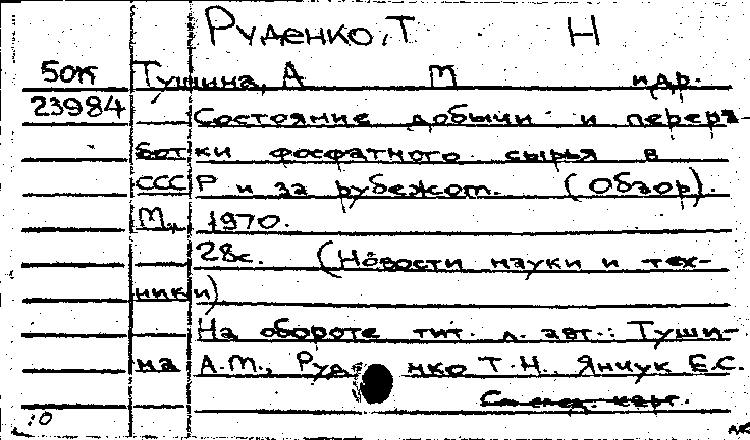 Руденко, Т Н
50К Тушина, А М и др.
23984 Состояние добычи и перера-
ботки фосфатного сырья в
СССР и за рубежом. (Обзор).
М., 1970.
28с. (Новости науки и тех-
ники)
На обороте тит. л. авт.: Туши-
на А.М., Руденко Т.Н. Янчук Е.С.
См след. карт.
:0